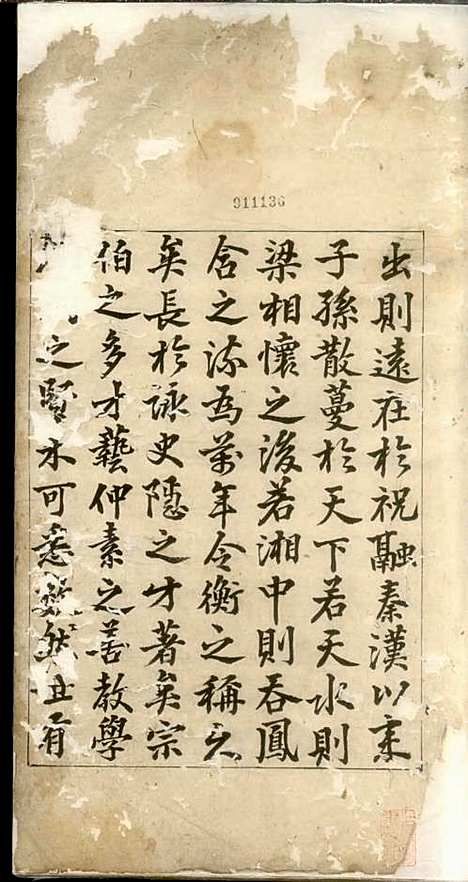 911136
出則遠在於祝融秦漢以来
子孫散蔓於天下若天水則
梁相懷之後若湘中則吞鳳
含之流為萬年令衡之稱之
矣長於詠史隱之才著矣宗
伯之多才藝仲素之善教學
之賢不可悉數然且有